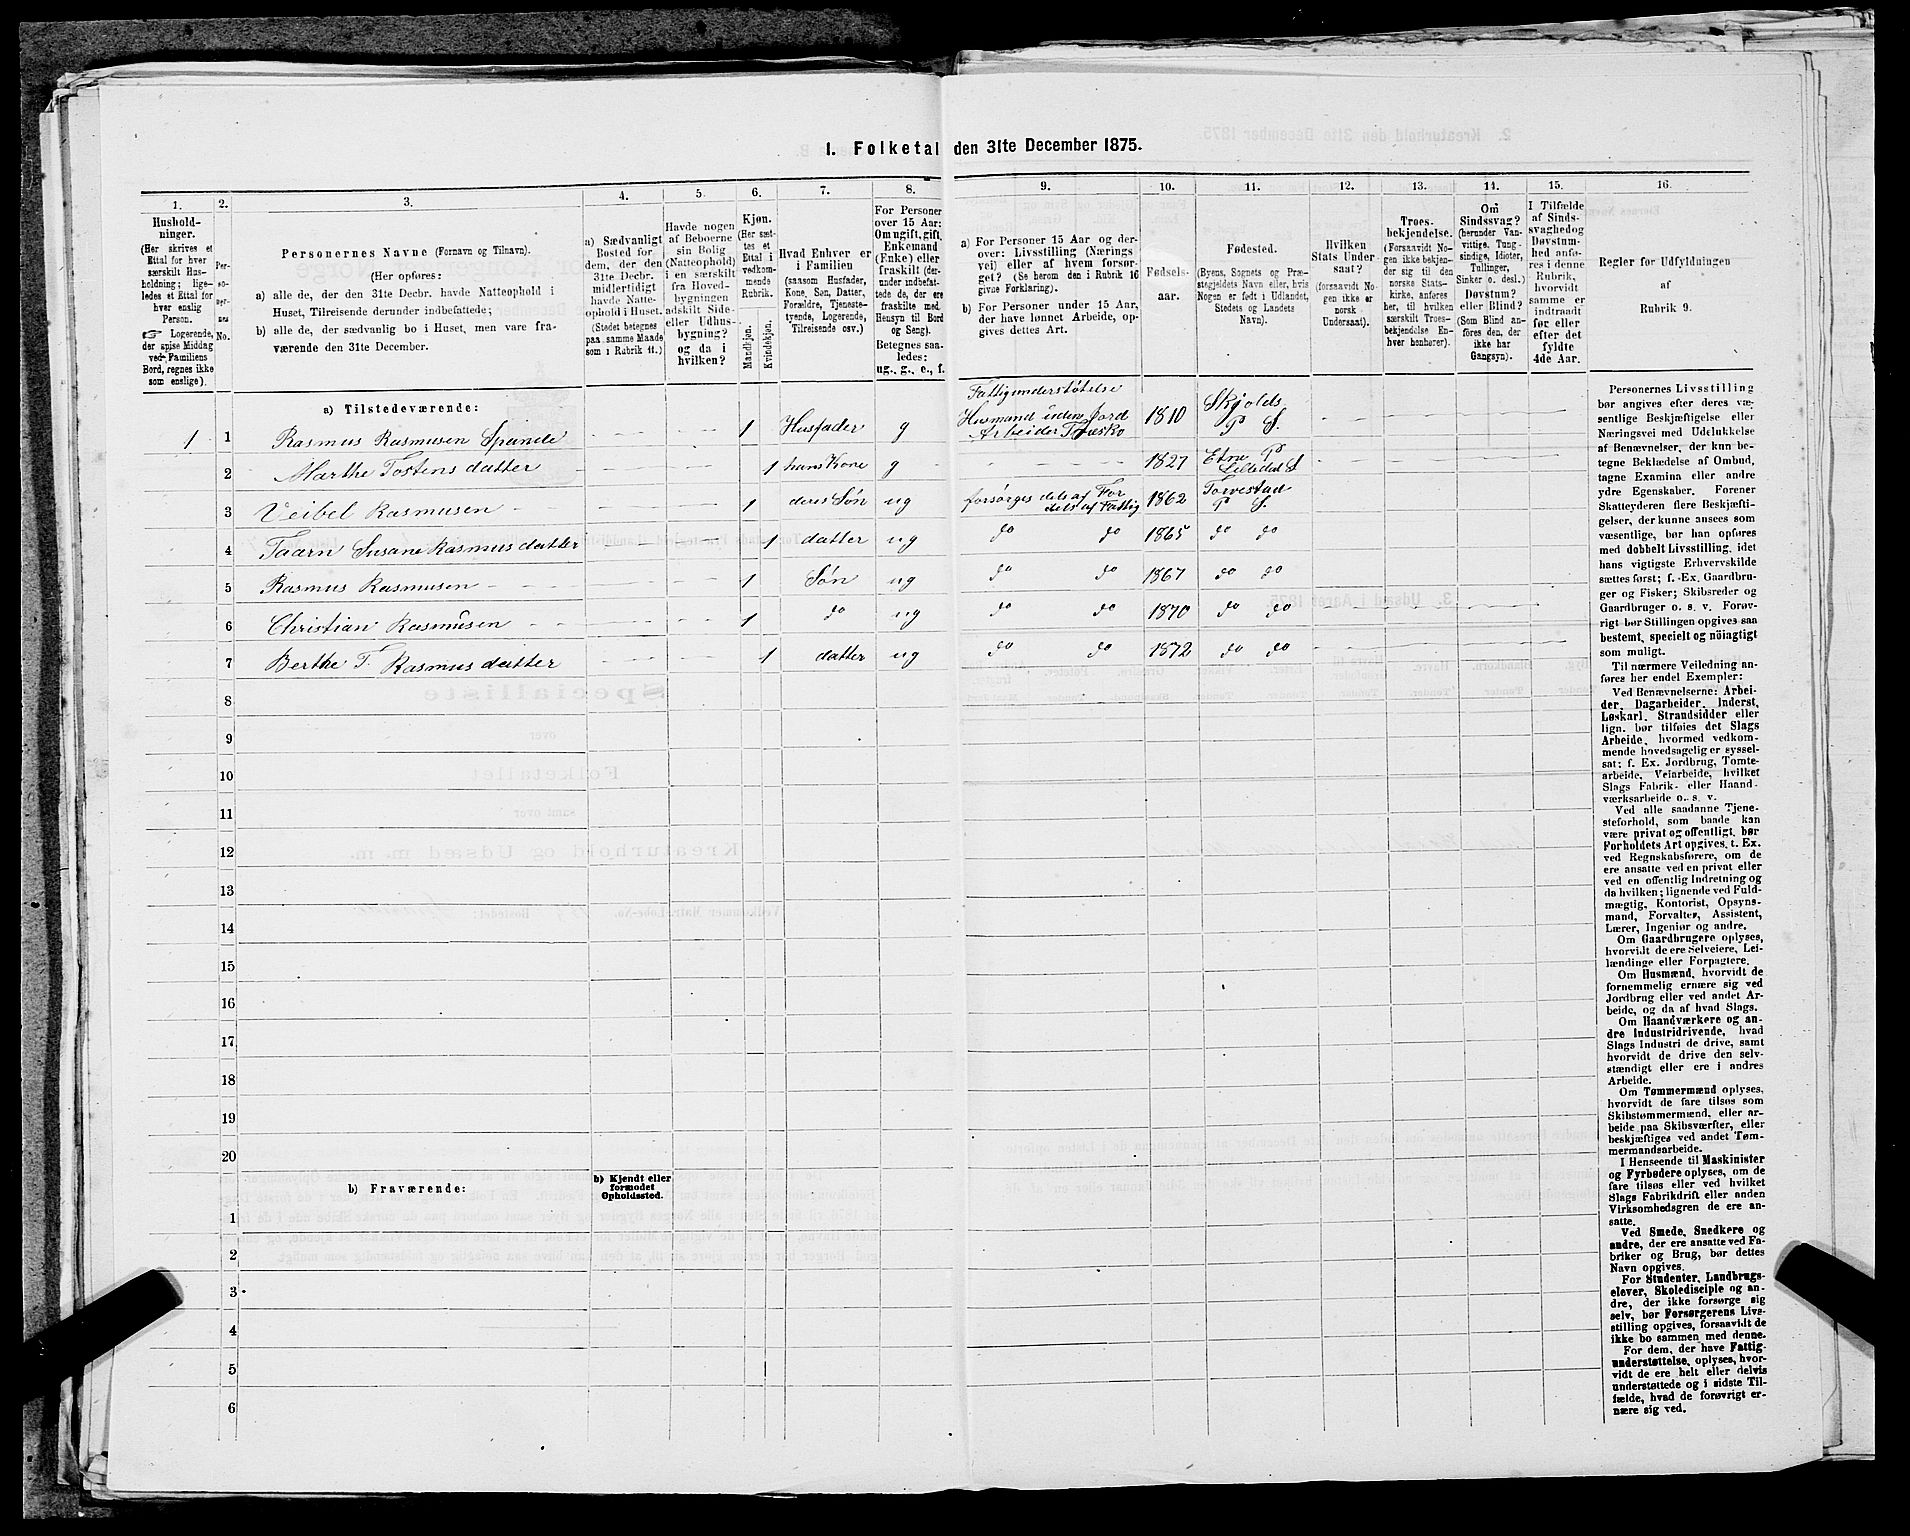 1. Folketal den 31te December 1875.
1.
2.
3.
4.
5.
6.
7.
8.
9.
10.
11.
12.
13.
14.
15.
16.
Hushold-
ninger.
(Her skrives et
Ettal for hver
særskilt Hus-
holdning; lige-
ledes et Ettal for
hver enslig
Person.
☞ Logerende,
der spise Middag
ved Familiens
Bord, regnes ikke
som enslige).
Per-
so-
ner-
nes
No.
Personernes Navne (Fornavn og Tilnavn).
(Her opføres:
a) alle de, der den 31te Decbr. havde Natteophold i
Huset, Tilreisende derunder indbefattede;
b) alle de, der sædvanlig bo i Huset, men vare fra-
værende den 31te December.
a) Sædvanligt
Bosted for
dem, der den
31te Decbr.
midlertidigt
havde Natte-
ophold i Huset.
(Stedet betegnes
paa samme Maade
som i Rubrik 11.)
Havde nogen
af Beboerne
sin Bolig
(Natteophold)
i en særskilt
fra Hoved-
bygningen
adskilt Side-
eller Udhus-
bygning?
og da i
hvilken?
Kjøn.
(Her sæt-
tes et
Ettal i
vedkom-
mende
Rubrik.
Mandkjøn.
Kvindekjøn.
Hvad Enhver er
i Familien
(saasom Husfader,
Kone, Søn, Datter,
Forældre, Tjeneste-
tyende, Logerende,
Tilreisende osv.)
For Personer
over 15 Aar:
Om ugift, gift,
Enkemand
(Enke) eller
fraskilt (der-
under indbefat-
tede de, der ere
fraskilte med
Hensyn til Bord
og Seng).
Betegnes saa-
ledes:
ug., g., e., f.
a) For Personer 15 Aar og der-
over: Livsstilling (Nærings
vei) eller af hvem forsør-
get? (Se herom den i Rubrik 16
givne Forklaring).
b) For Personer under 15 Aar,
der have lønnet Arbeide, op-
gives dettes Art.
Fødsels-
aar.
Fødested.
(Byens, Sognets og Præ-
stegjeldets Navn eller, hvis
Nogen er født i Udlandet,
Stedets og Landets
Navn).
Hvilken
Stats Under-
saat?
(forsaavidt No-
gen ikke er
norsk
Undersaat).
Troes-
bekjendelse.
(Forsaavidt No-
gen ikke bekjen-
der sig til den
norske Stats-
kirke, anføres
her, til hvilken
særskilt Troes-
bekjendelse En-
hver henhører).
Om
Sindssvag?
(herunder Van-
vittige, Tung-
sindige, Idioter,
Tullinger,
Sinker o. desl.)
Døvstum?
eller Blind?
(Som Blind an-
føres den, der
ikke har
Gangsyn).
I Tilfælde
af Sinds-
svaghed og
Døvstum-
hed anfø-
res i denne
Rubrik,
hvorvidt
samme er
indtraadt
før eller
efter det
fyldte
4de Aar.
Regler for Udfyldningen
af
Rubrik 9.
a) Tilstedeværende:
Fattigunderstøtelse
1 1 Rasmus Rasmusen Spande 1 Husfader g Husmand uden Jord Arbeider Træsko 1810 Skjolds P S.
2 Marthe Tostensdatter 1 hans Kone g 1827 Etne P Lilledal S
3 Veibel Rasmusen 1 deres Søn ug forsørges dels af For dels af Fattig 1862 Torvestad P S.
4 Taarn Susane Rasmusdatter 1 datter ug do do 1865 do do
5 Rasmus Rasmusen 1 Søn ug do do 1867 do do
6 Christian Rasmusen 1 do ug do do 1870 do do
7 Berthe T. Rasmusdatter 1 datter ug do do 1872 do do
8
9
10
11
12
13
14
15
16
17
18
19
20
b) Fraværende:
b) Kjendt eller
formodet
Opholdssted.
1
2
3
4
5
6
Personernes Livsstilling
bør angives efter deres væ-
sentlige Beskjæftigelse eller
Næringsvei med Udelukkelse
af Benævnelser, der kun be-
tegne Beklædelse af Ombud,
tagne Examina eller andre
ydre Egenskaber. Forener
Skatteyderen flere Beskjæfti-
gelser, der kunne ansees som
væsentlige, bør han opføres
med dobbelt Livsstilling, idet
hans vigtigste Erhvervskilde
sættes først; f. Ex. Gaardbru-
ger og Fisker; Skibsreder og
Gaardbruger o. s. v. Forøv-
rigt bør Stillingen opgives saa
bestemt, specielt og nöiagtigt
som muligt.
Til nærmere Veiledning an-
føres her endel Exempler:
Ved Benævnelserne: Arbei-
der, Dagarbeider, Inderst,
Løskarl, Strandsidder eller
lign. bør tilføies det Slags
Arbeide, hvormed vedkom-
mende hovedsagelig er syssel-
sat; f. Ex. Jordbrug, Tomte-
arbeide, Veiarbeide, hvilket
Slags Fabrik- eller Haand-
værksarbeide o. s. v.
Ved alle saadanne Tjene-
steforhold, som baade kan
være privat og offentligt, bør
Forholdets Art opgives, t. Ex.
ved Regnskabsførere, om de
ere ansatte ved en privat eller
ved en offentlig Indretning og
da hvilken; lignende ved Fuld-
mægtig, Kontorist, Opsyns-
mand, Forvalter, Assistent,
Lærer, Ingeniør og andre.
Om Gaardbrugere oplyses,
hvorvidt de ere Selveiere, Lei-
lændinge eller Forpagtere.
Om Husmænd, hvorvidt de
fornemmelig ernære sig ved
Jordbrug eller ved andet Ar-
beide, og da af hvad Slags.
Om Haandværkere og an-
dre Industridrivende, hvad
Slags Industri de drive, samt
hvorvidt de drive den selv-
stændigt eller ere i andres
Arbeide.
Om Tømmermænd oplyses,
hvorvidt de fare tilsøs som
Skibstømmermænd, eller ar-
beide paa Skibsværfter, eller
beskjæftiges ved andet Tøm-
mermandsarbeide.
I Henseende til Maskinister
og Fyrbødere oplyses, om de
fare tilsøs eller ved hvilket
Slags Fabrikdrift eller anden
Virksomhedsgren de ere an-
satte.
Ved Smede, Snedkere og
andre, der ere ansatte ved Fa-
briker og Brug, bør dettes
Navn opgives.
For Studenter, Landbrugs-
elever, Skoledisciple og an-
dre, der ikke forsørge sig
selv, bør Forsørgerens Livs-
stilling opgives, forsaavidt de
ikke bo sammen med denne.
For dem, der have Fattig-
understøttelse, oplyses, hvor-
vidt de ere helt eller delvis
understøttede og i sidste Til-
fælde, hvad de forøvrigt er-
nære sig ved.